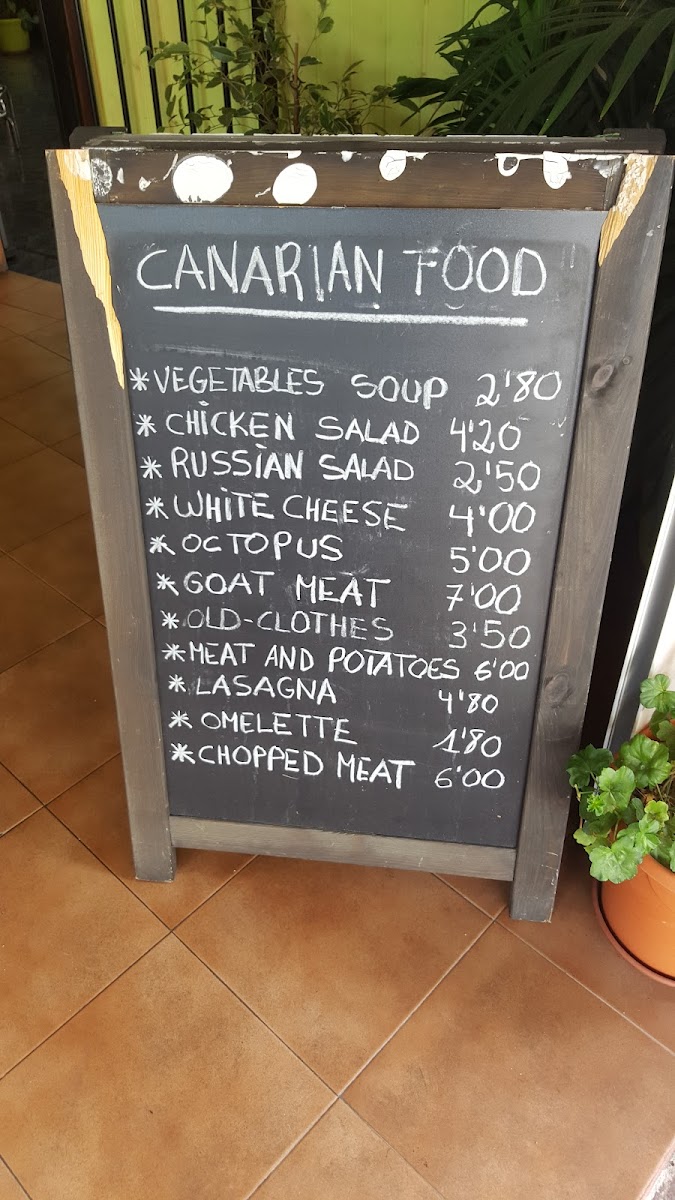 CANARIAN FOOD
*VEGETABLES SOUP 2'80
*CHICKEN SALAD 4'20
*RUSSIAN SALAD 2'50
*WHITE CHEESE 4'00
*OCTOPUS 5'00
*GOAT MEAT 7'00
*OLD-CLOTHES 3'50
*MEAT AND POTATOES 6'00
*LASAGNA 4'80
*OMELETTE 1'80
*CHOPPED MEAT 6'00